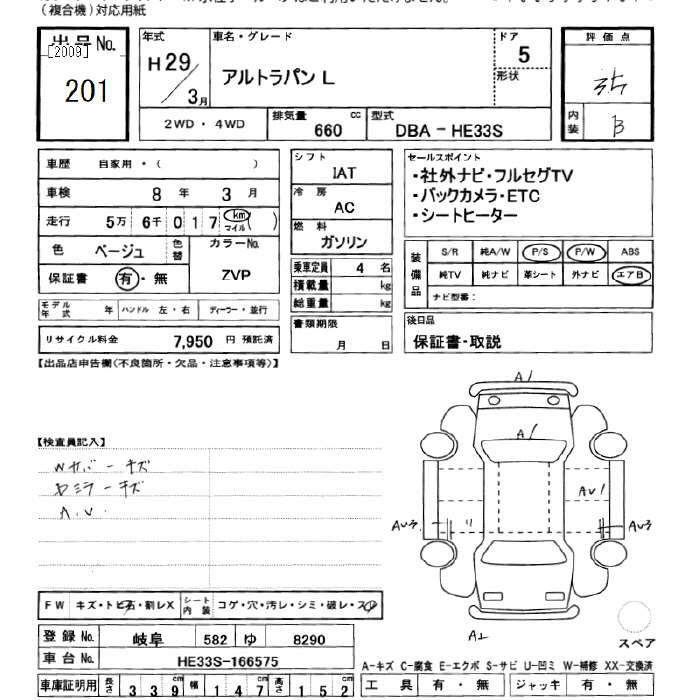 (複合機)対応用紙
出品No.
[2009]
201
年式
H29
3月
車名・グレード
アルトラパン L
ドア
5
形状
評価点
内装
B
2WD・4WD
排気量 660 cc
型式
DBA－HE33S
車歴 自家用・( )
車検 8 年 3 月
走行 5万 6千 0 1 7 km マイル( )
色 ベージュ 色替
カラーNo.
ZVP
保証書 有・無
モデル年式 年 ハンドル 左・右 ディーラー・並行
リサイクル料金 7,950 円 預託済
シフト
IAT
冷房
AC
燃料
ガソリン
乗車定員 4 名
積載量 kg
総重量 kg
書類期限
月 日
セールスポイント
・社外ナビ・フルセグTV
・バックカメラ・ETC
・シートヒーター
装備品
S/R 純A/W P/S P/W ABS
純TV 純ナビ 革シート 外ナビ エアB
ナビ型番:
後日品
保証書・取説
【出品店申告欄(不良箇所・欠品・注意事項等)】
【検査員記入】
Wサバーキズ
A.U.
A1
A1
AU1
AU3
AU3
A2
スペア
FW キズ・トビ石・割レX
シート内装 コゲ・穴・汚レ・シミ・破レ・スレ
登録No. 岐阜 582 ゆ 8290
車台No. HE33S-166575
車庫証明用 長さ 339cm 幅 147cm 高さ 152cm
A-キズ C-腐食 E-エクボ S-サビ U-凹ミ W-補修 XX-交換済
工具 有・無 ジャッキ 有・無